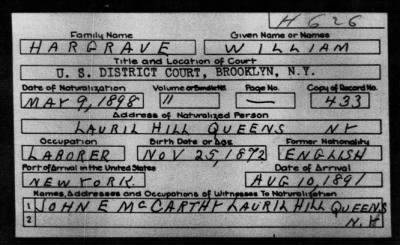 H 626
Family Name Given Name or Names
HARGRAVE WILLIAM
Title and Location of Court
U. S. DISTRICT COURT, BROOKLYN, N.Y.
Date of Naturalization Volume or Bundle No. Page No. Copy of Record No.
MAY 9, 1898 11 — 433
Address of Naturalized Person
LAURIL HILL QUEENS NY
Occupation Birth Date or Age Former Nationality
LABORER NOV 25, 1872 ENGLISH
Port of Arrival in the United States Date of Arrival
NEW YORK AUG 10, 1891
Names, Addresses and Occupations of Witnesses To Naturalization
1 JOHN E MCCARTHY LAURIL HILL QUEENS
2 N.Y